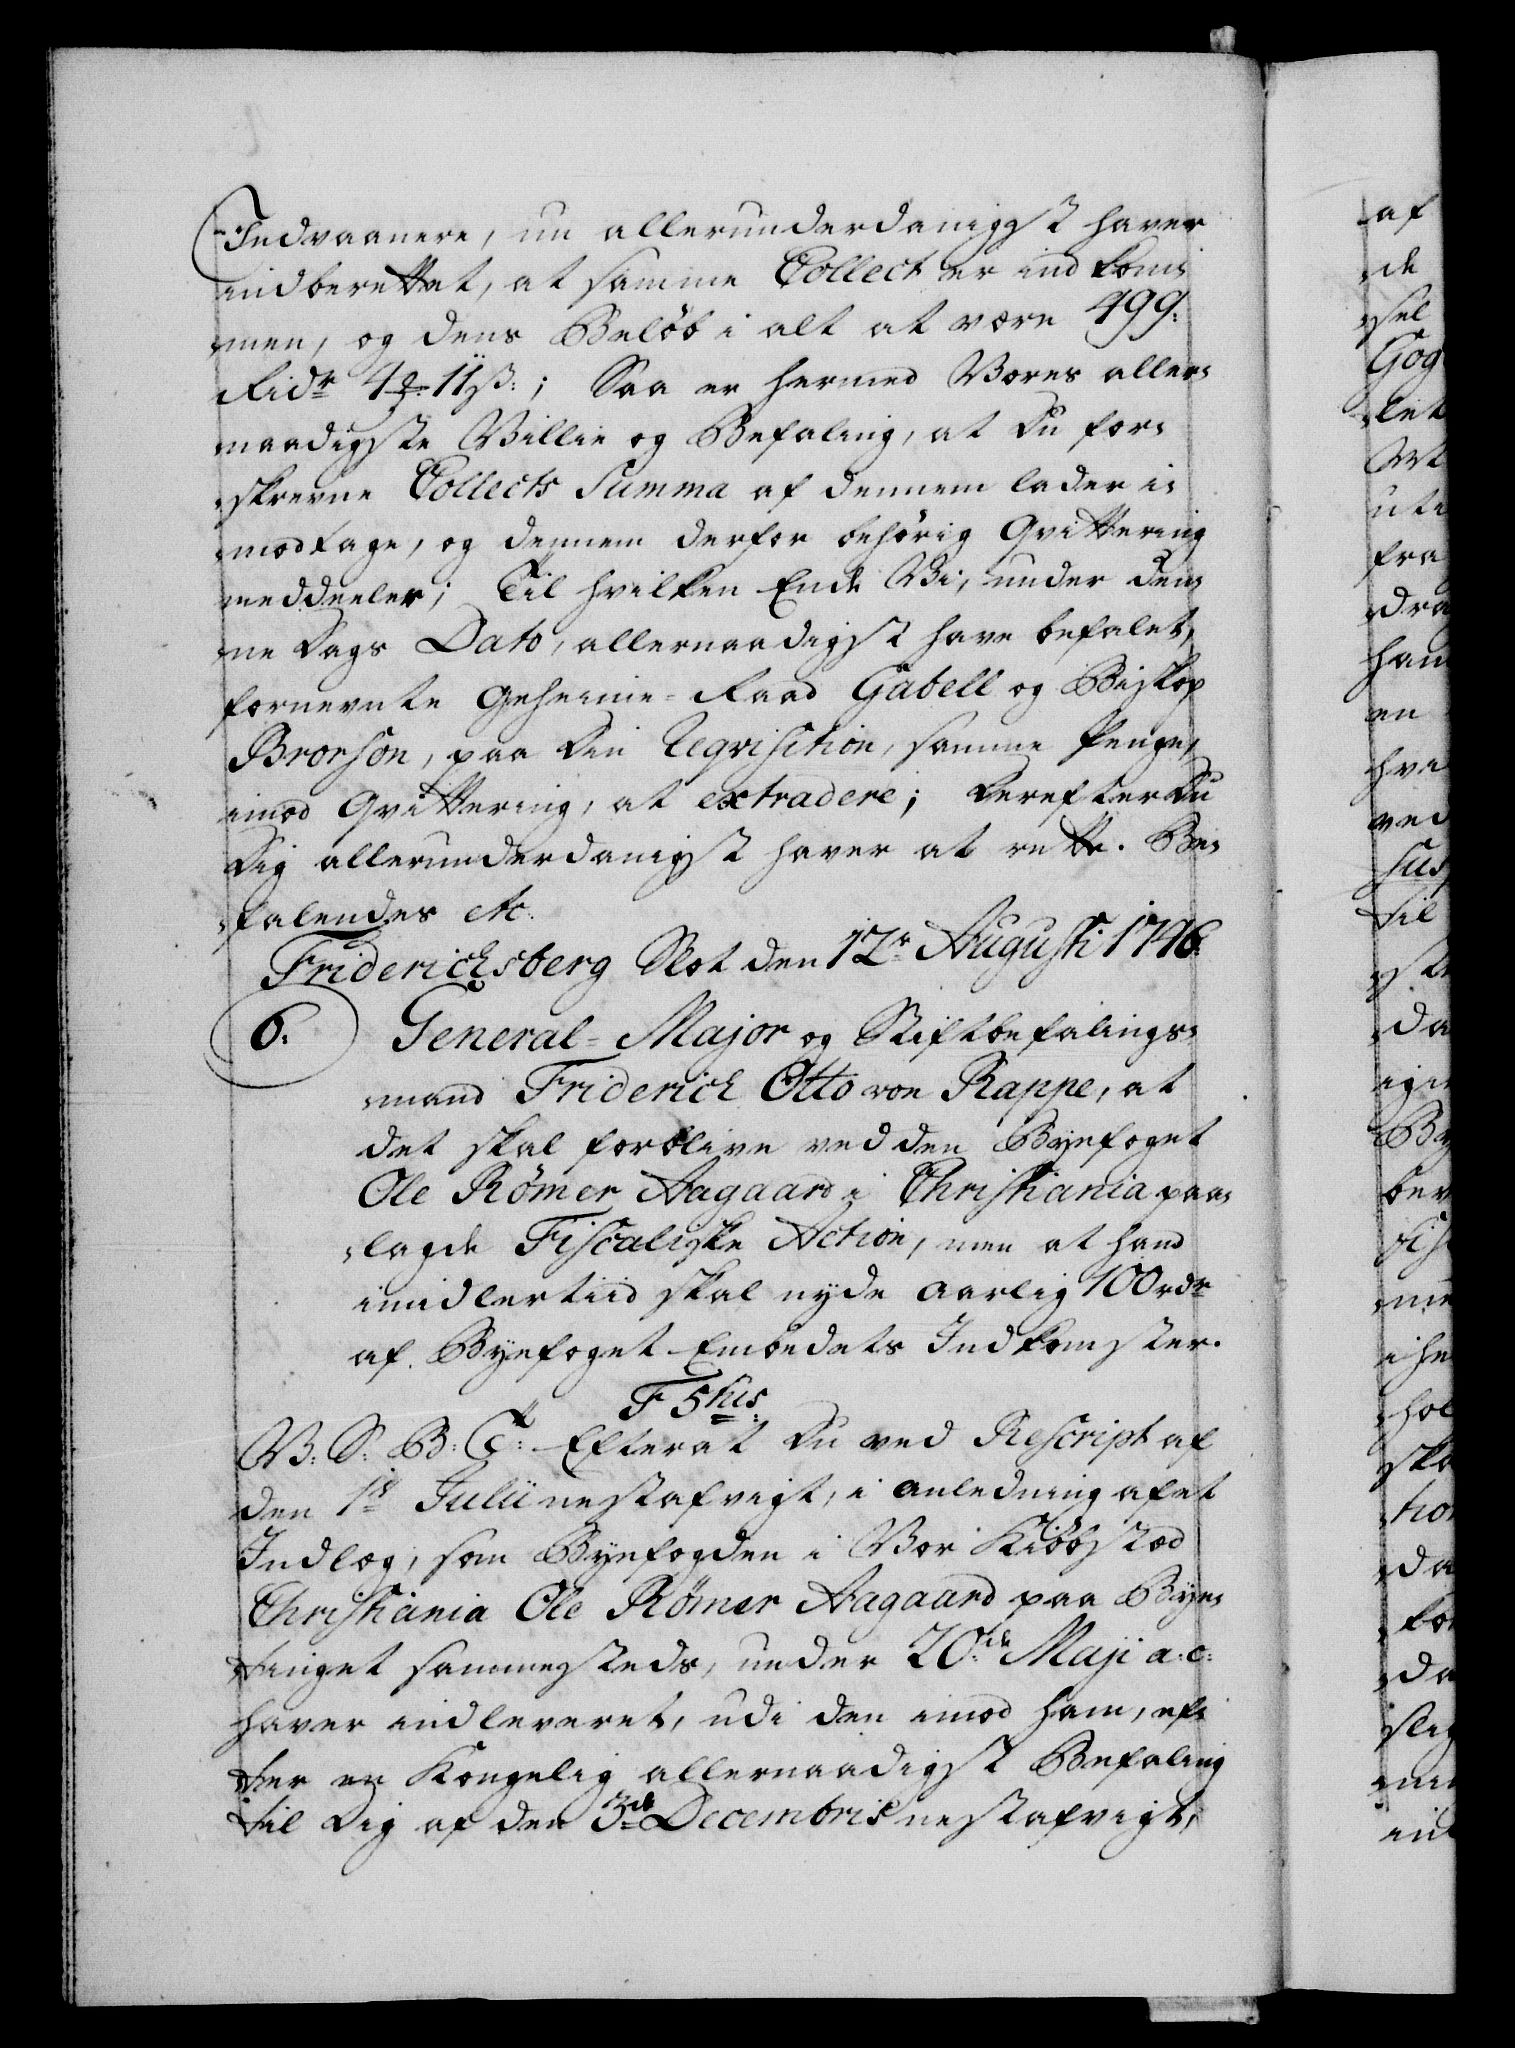 Indvaanere, nu allerunderdanigst haver
indberettet, at samme Collect er indkom¬
men, og dens Beløb i alt at være 499.
Ridr 4 11ß: ; Saa er hermed Vores aller¬
naadigste Villie og Befaling, at du for¬
skrevne Collects Summa af dennem lader i¬
modtage, og dennem derfor behørig Qvittering
meddeeler; Til hvilken Ende Vi, under den¬
ne Dags Dato, allernaadigst have befalet,
fornevnte Geheime-Raad Gabell og Biskop
Brorson, paa din Reqvisition, samme Penge,
imod Qvittering, at extradere; Derefter du
dig allerunderdanigst haver at rette. Be¬
falendes etc.
Friderichsberg Slot den 12te Augusti 1746.
6. General-Major og Stiftbefalings¬
mand Friderich Otto von Rappe, at
det skal forblive ved den Byefoget
Ole Rømer Aagaard i Christiania paa¬
lagde Fiscaliske Action, men at hand
imidlertiid skal nyde aarlig 100 rdr
af Byefoget Embedets Indkomster.
F 5tus
V: S: B: T: Efterat du ved Rescript af
den 1ste Julii nestafvigt, i anledning af et
Indlæg, som Byefogden i Vor Kiøbstæd
Christiania Ole Rømer Aagaard paa Bye¬
tinget sammesteds, under 20de Maji a: c:
haver indleveret, udi den imod ham, ef¬
ter en Kongelig allernaadigst Befaling
til dig af den 3die Decembris nestafvigt,
af
de
sel
Gog
let
ute
fra
dra
han
en
hvi
ved
sus
til
da
By
bev
hol
ska
tion
da
for
da
slig
min
ind